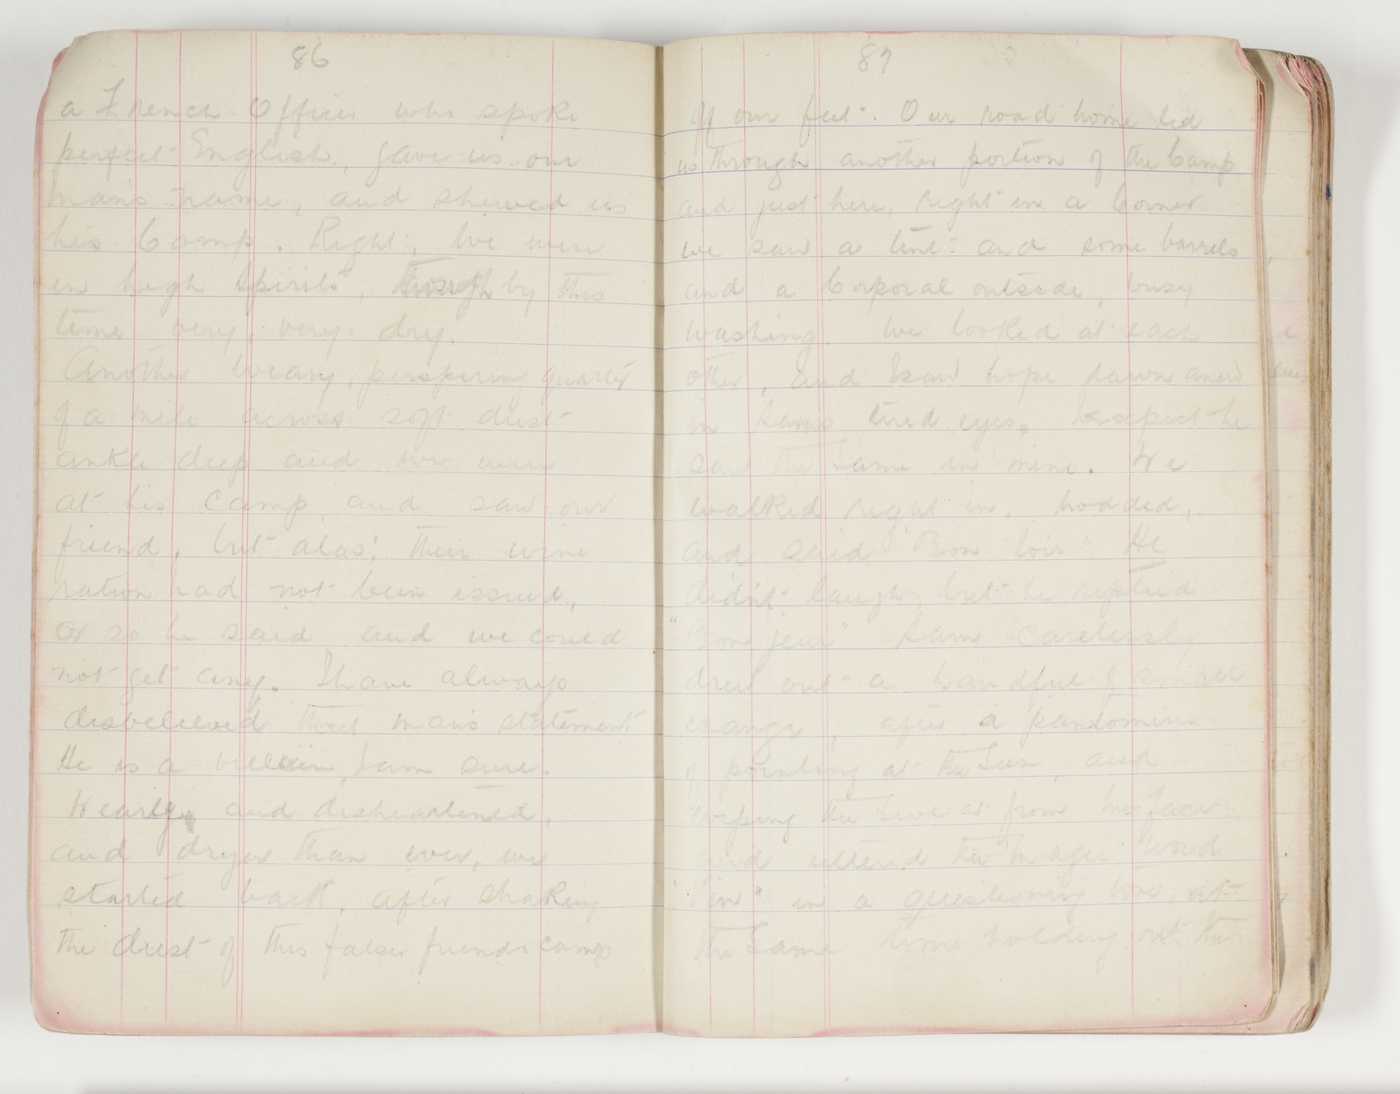 86
a French Officer who spoke
perfect English, gave us our
man's name, and shewed us
his Camp. Right, We were
in high spirits, though by this
time very, very dry.
Another weary, perspiring quarter
of a mile across soft dust
ankle deep and we were
at his camp and saw our
friend, but alas! their wine
ration had not been issued,
or so he said and we could
not get any. I have always
disbelieved that man's statement
He is a villain, I am sure.
Wearily, and disheartened,
and dryer than ever, we
started back, after shaking
the dust of this false friends camp
87
off our feet. Our road home led
us through another portion of the Camp
and just here, right in a Corner
we saw a tent: and some barrels
and a Corporal outside, busy
washing. We looked at each
other, and I saw hope dawn anew
in Sams tired eyes, I expect he
saw the same in mine. We
walked right in, nodded,
and said "Bon Soir" He
didn't laugh, but he replied
"Bon jour" Sam carelessly
drew out a handful of small
change, after a pantomime
of pointing at the Sun, and
wiping the sweat from his face
and uttered the magic word
"Vin" in a questioning tone, at
the same time holding out the